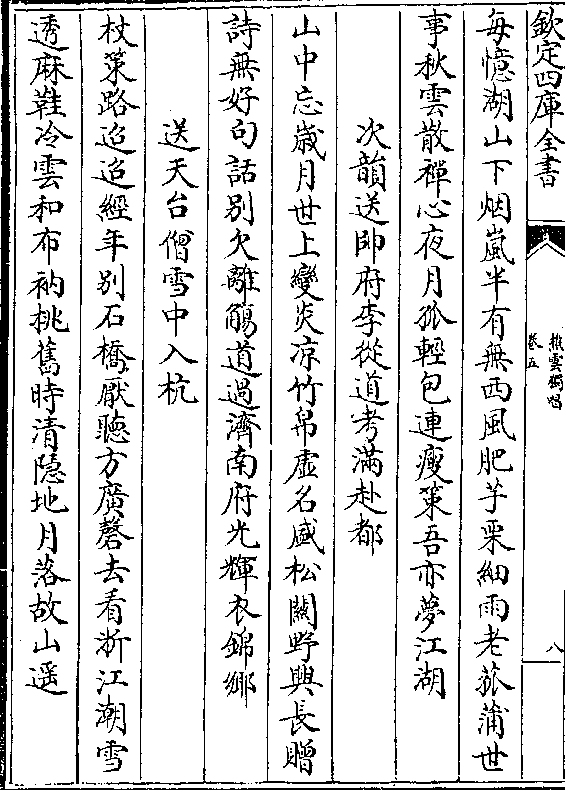 欽定四庫全書
樵雲獨唱
卷五
八
每憶湖山下烟嵐半有無西風肥芋栗細雨老菰蒲世
事秋雲散禪心夜月孤輕包連瘦策吾亦夢江湖
次韻送帥府李從道考滿赴都
山中忘歲月世上變炎凉竹帛虚名盛松關野興長贈
詩無好句話別欠離觴道過濟南府光輝衣錦鄉
送天台僧雪中入杭
杖策路迢迢經年別石橋厭聽方廣磬去看浙江潮雪
透麻鞋冷雲和布衲挑舊時清隱地月落故山遥